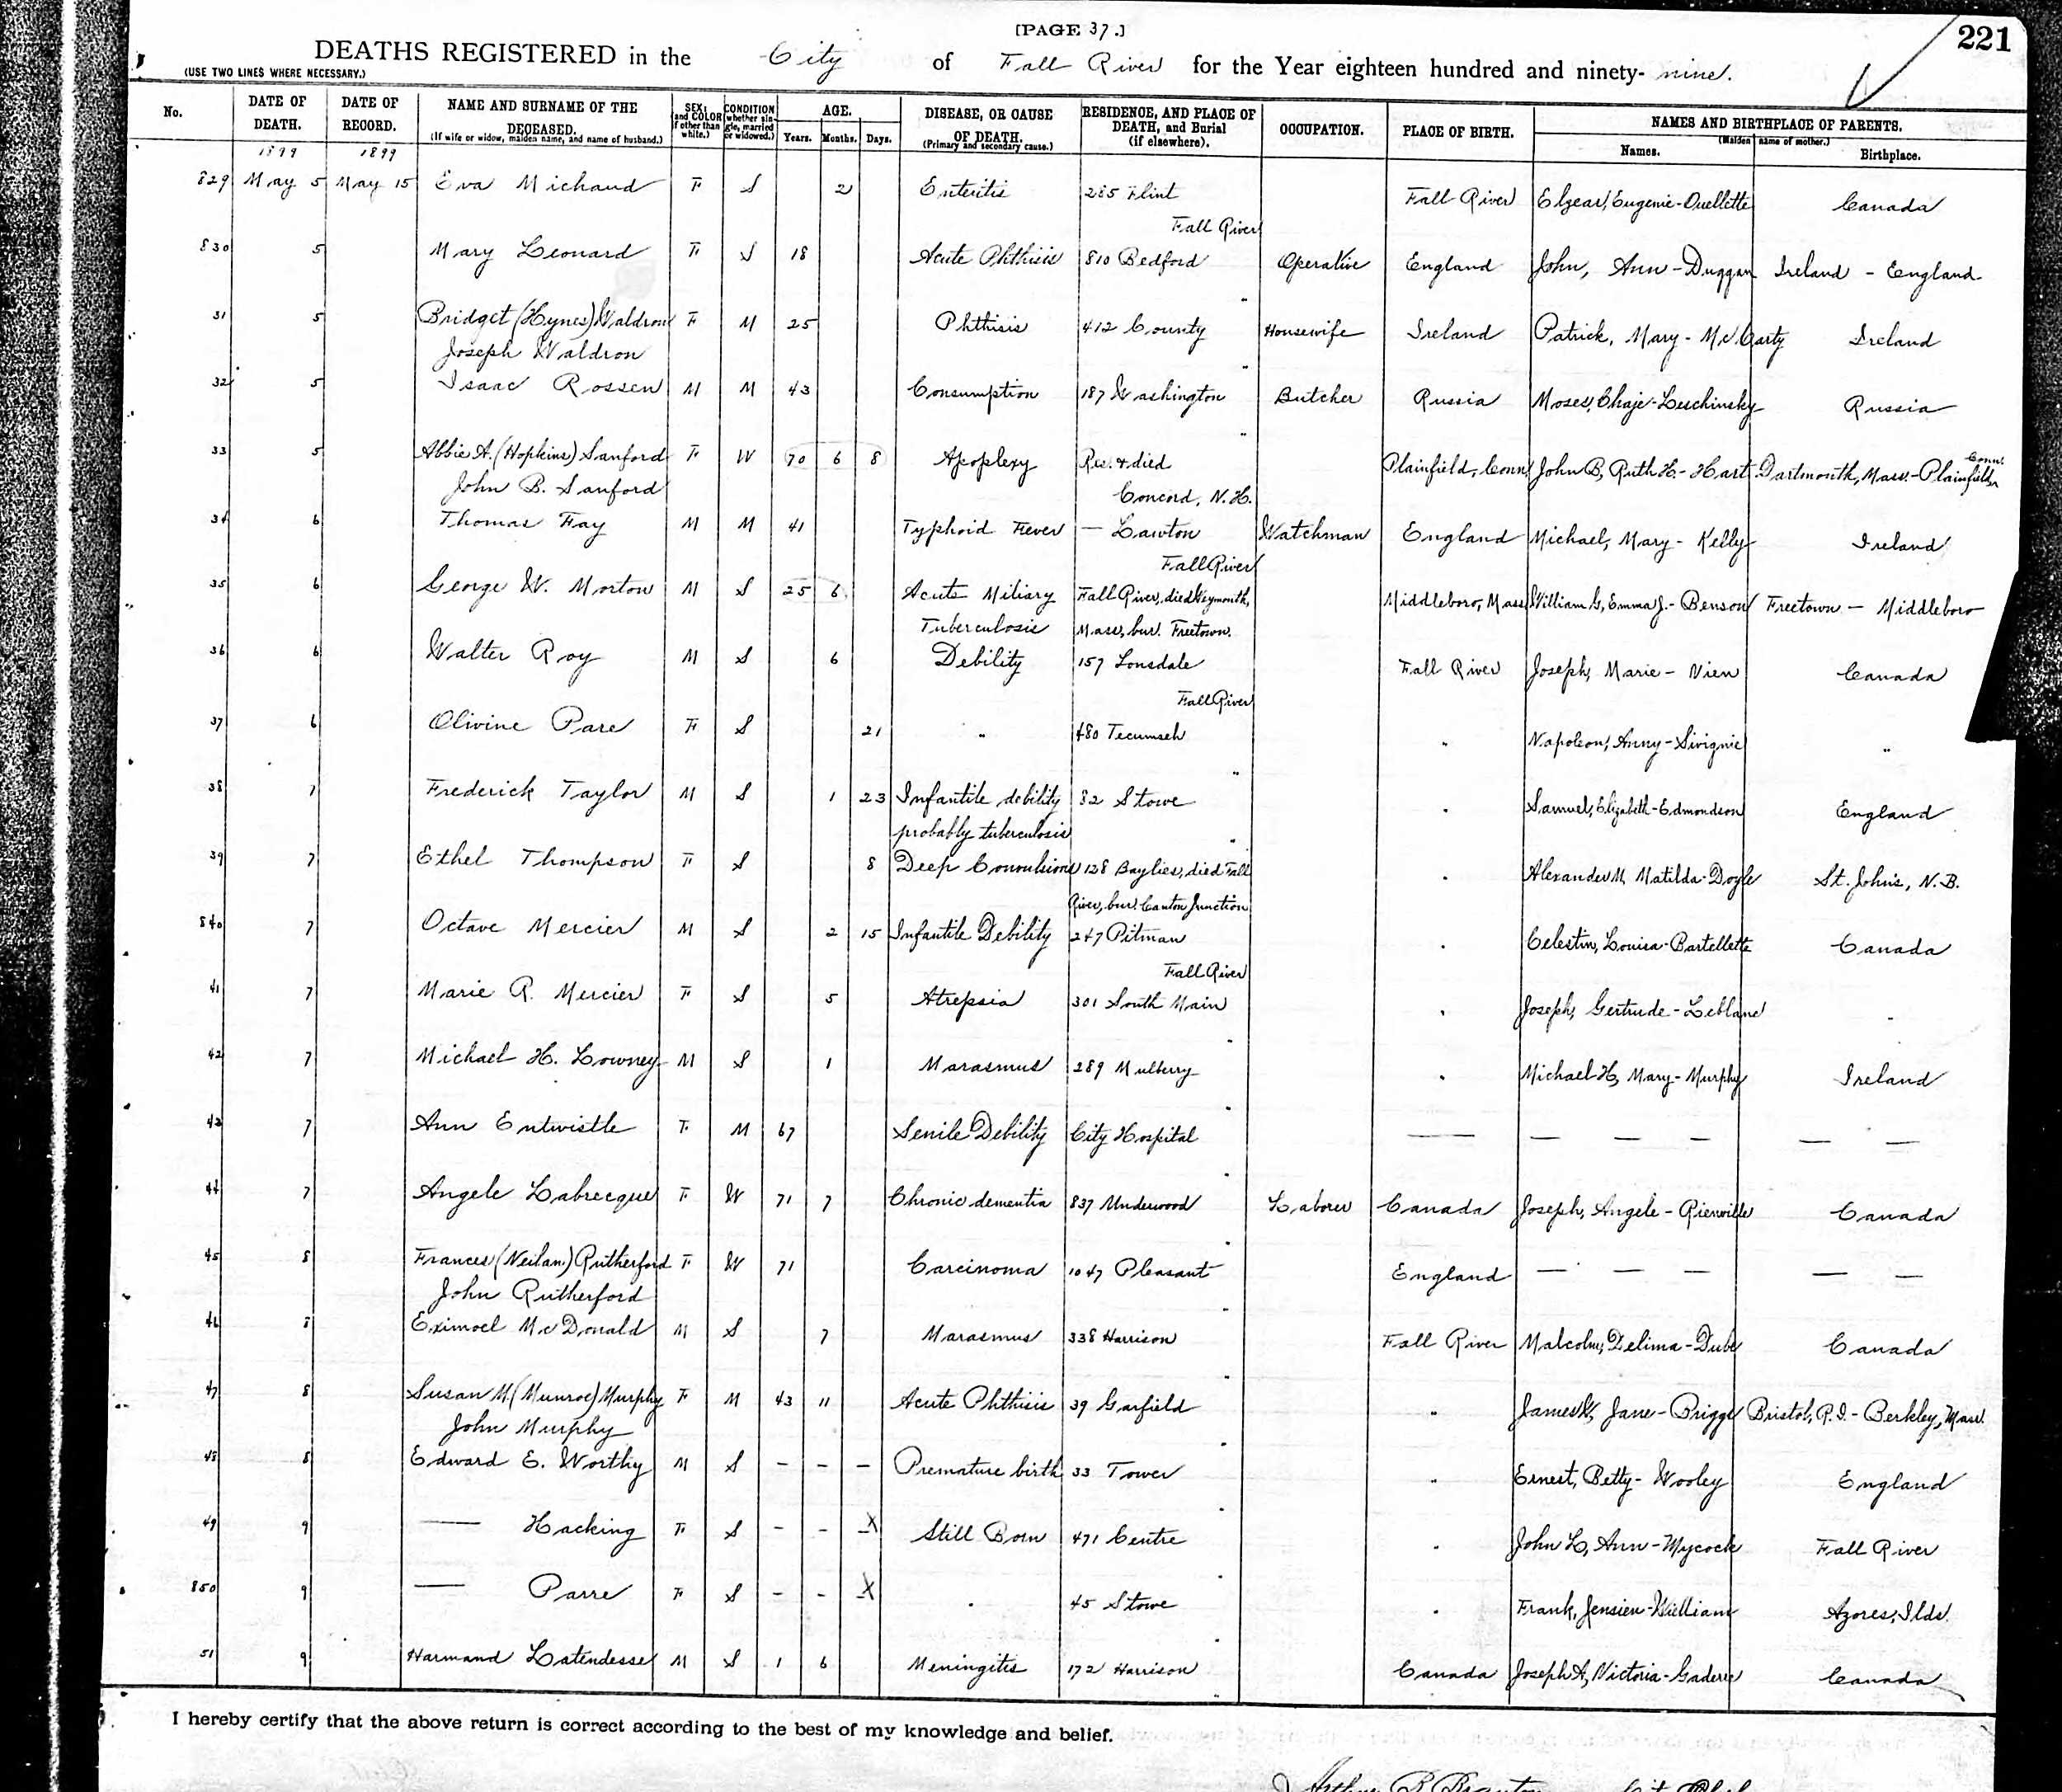 [PAGE 37.]
221
DEATHS REGISTERED in the City of Fall River for the Year eighteen hundred and ninety-nine.
(USE TWO LINES WHERE NECESSARY.)
No. DATE OF DEATH. DATE OF RECORD. NAME AND SURNAME OF THE DECEASED. (If wife or widow, maiden name, and name of husband.) SEX, and COLOR (if other than white.) CONDITION (whether single, married or widowed.) AGE. Years. Months. Days. DISEASE, OR CAUSE OF DEATH. (Primary and secondary cause.) RESIDENCE, AND PLACE OF DEATH, and Burial (if elsewhere). OCCUPATION. PLACE OF BIRTH. NAMES AND BIRTHPLACE OF PARENTS. (Maiden name of mother.) Names. Birthplace.
1899 1899
829 May 5 May 15 Eva Michaud F S 2 Enteritis 285 Flint Fall River Elzear, Eugenie-Ouellette Canada
Fall River
830 5 Mary Leonard F S 18 Acute Phthisis 810 Bedford Operative England John, Ann-Duggan Ireland - England
"
31 5 Bridget (Hynes) Waldron F M 25 Phthisis 412 County Housewife Ireland Patrick, Mary-McCarty Ireland
Joseph Waldron "
32 5 Isaac Rossen M M 43 Consumption 187 Washington Butcher Russia Moses, Chaje-Leschinsky Russia
"
33 5 Abbie A. (Hopkins) Sanford F W 70 6 8 Apoplexy Res. & died Plainfield, Conn. John B, Ruth H.-Hart Dartmouth, Mass.-Plainfield, Conn.
John B. Sanford Concord, N.H.
34 6 Thomas Fay M M 41 Typhoid Fever — Lawton Watchman England Michael, Mary-Kelly Ireland
Fall River
35 6 George W. Morton M S 25 6 Acute Miliary Fall River, died Weymouth, Middleboro, Mass. William G, Emma J.-Benson Freetown - Middleboro
Tuberculosis Mass, bur. Freetown.
36 6 Walter Roy M S 6 Debility 157 Lonsdale Fall River Joseph, Marie-Vien Canada
Fall River
37 6 Olivine Pare F S 21 " 480 Tecumseh " Napoleon, Anny-Sivignie "
"
38 7 Frederick Taylor M S 1 23 Infantile debility 82 Stowe " Samuel, Elizabeth-Edmondson England
probably tuberculosis "
39 7 Ethel Thompson F S 8 Deep Convulsions 128 Baylies, died Fall " Alexander M, Matilda-Doyle St. John's, N.B.
River, bur. Canton Junction
840 7 Octave Mercier M S 2 15 Infantile Debility 247 Pitman " Celestin, Louisa-Bartellette Canada
Fall River
41 7 Marie R. Mercier F S 5 Atrepsia 301 South Main " Joseph, Gertrude-Leblanc "
42 7 Michael H. Lowney M S 1 Marasmus 289 Mulberry " Michael H, Mary-Murphy Ireland
"
43 7 Ann Entwistle F M 67 Senile Debility City Hospital — — — — — —
"
44 7 Angele Labrecque F W 71 7 Chronic dementia 837 Underwood Laborer Canada Joseph, Angele-Rienville Canada
"
45 8 Frances (Neilan) Rutherford F W 71 Carcinoma 1047 Pleasant England — — — — —
John Rutherford "
46 8 Eximoel McDonald M S 7 Marasmus 338 Harrison Fall River Malcolm, Delima-Dube Canada
"
47 8 Susan M. (Munroe) Murphy F M 43 11 Acute Phthisis 39 Garfield " James W, Jane-Briggs Bristol, R.I.-Berkley, Mass.
John Murphy "
48 8 Edward E. Worthy M S - - - Premature birth 33 Tower " Ernest, Betty-Wooley England
"
49 9 — Hacking F S - - X Still Born 471 Centre " John L, Ann-Mycock Fall River
"
850 9 — Parre F S - - X " 45 Stowe " Frank, Jensien-William Azores, Ilds.
"
51 9 Harmand Latendesse M S 1 6 Meningitis 172 Harrison Canada Joseph A, Victoria-Gaderre Canada
"
I hereby certify that the above return is correct according to the best of my knowledge and belief.